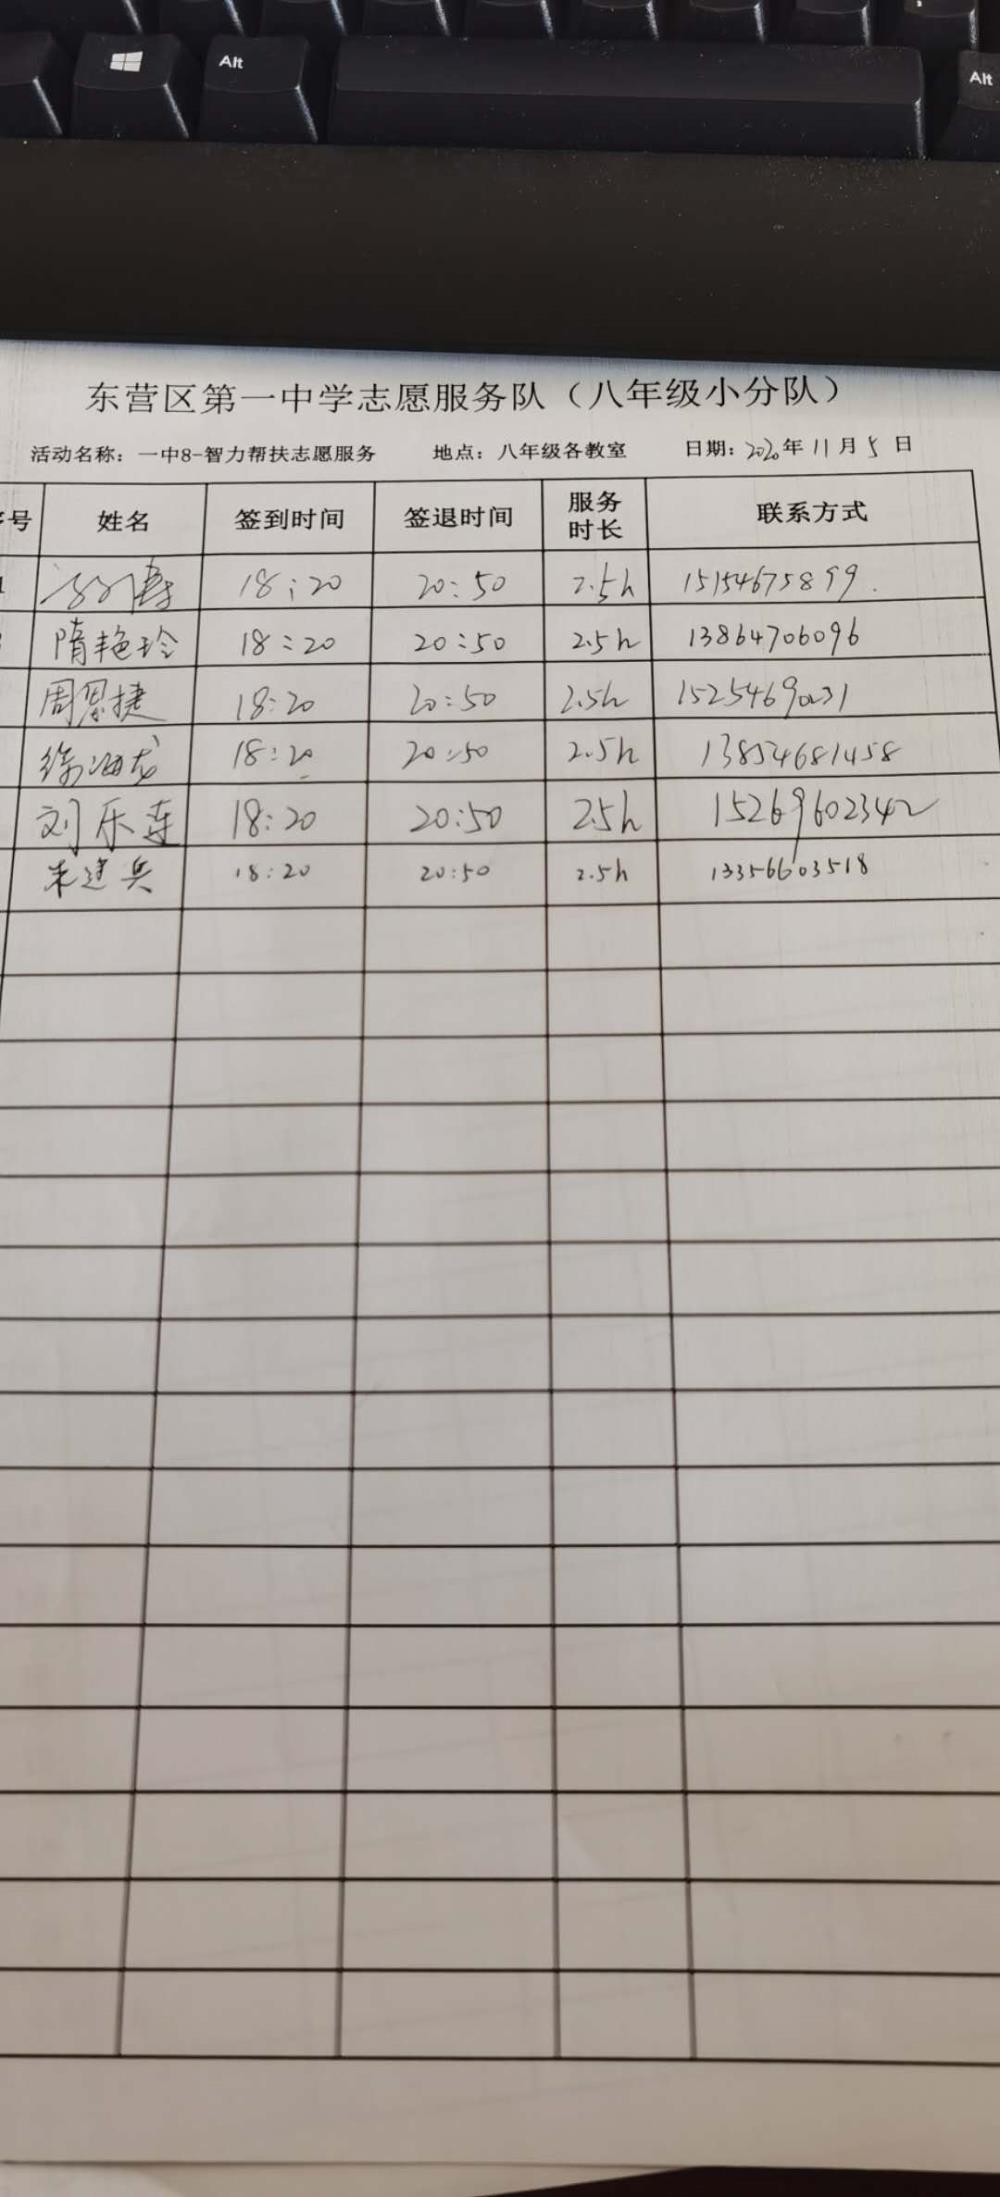 Alt
Alt
东营区第一中学志愿服务队（八年级小分队）
活动名称：一中8-智力帮扶志愿服务 地点：八年级各教室 日期：2020年11月5日
号 姓名 签到时间 签退时间 服务时长 联系方式
18:20 20:50 2.5h 15154675899
隋艳玲 18:20 20:50 2.5h 13864706096
周恩捷 18:20 20:50 2.5h 15254690231
徐海龙 18:20 20:50 2.5h 13854681458
刘乐莲 18:20 20:50 2.5h 15269602342
朱建兵 18:20 20:50 2.5h 13356603518